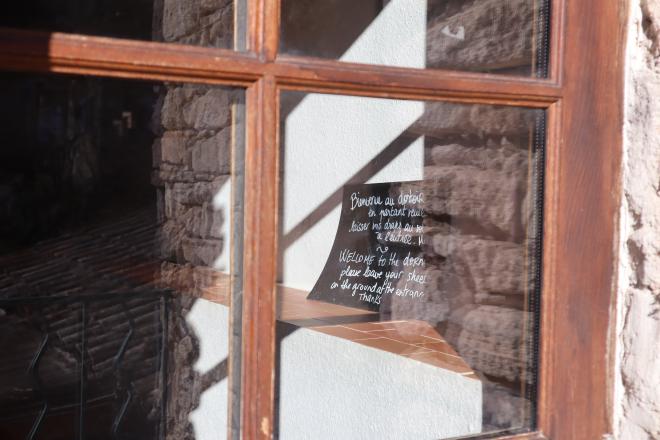 Bienvenue au dortoir
en partant veuil
laisser vos draps au so
a l'entrée.
WELCOME to the dorm
please leave your shee
on the ground at the entran
Thanks